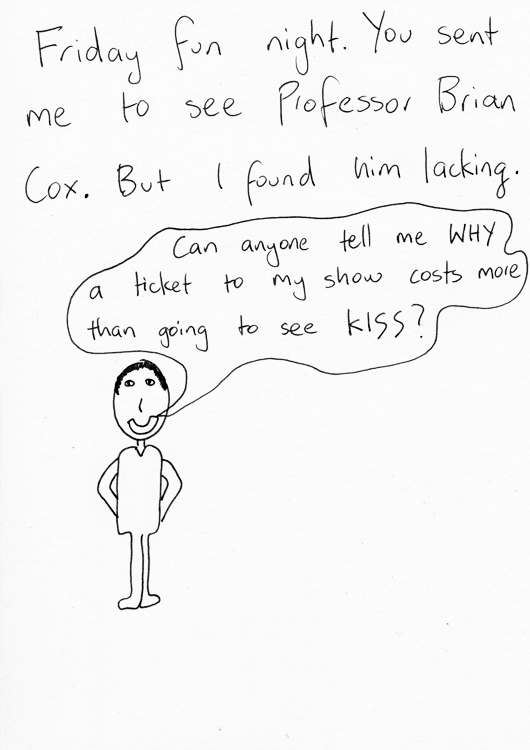 Friday fun night. You sent
me to see Professor Brian
Cox. But I found him lacking.
Can anyone tell me WHY
a ticket to my show costs more
than going to see KISS?